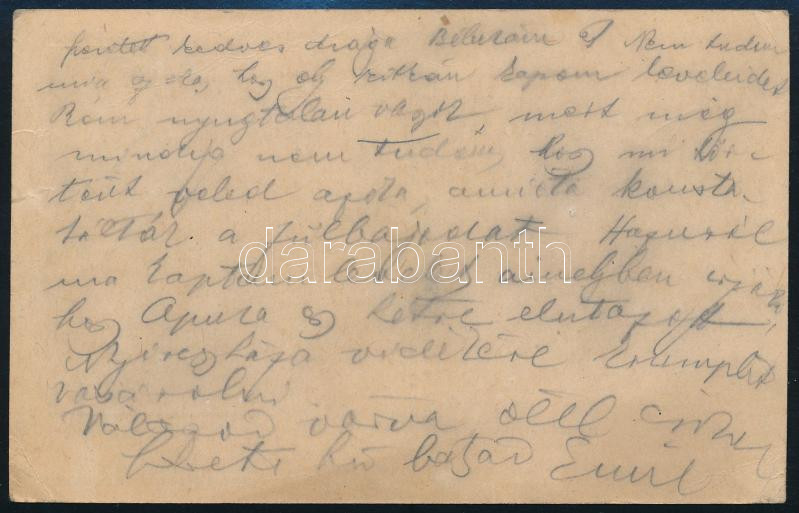 kedves drága Béluskám Nem tudom
mia az oka, hog oly ritkán kapom leveleidet
Rém nyugtalan vagyok mert még
mindig nem tudom, hog mi tör-
tént veled azota, amiota konsta-
tálták a fülbajodat Hazurol
ma kaptam levelet amelyben irják
hog Apuka egy hétre elutazott
Nyiregyháza vidékére krumplit
vásárolni
Válaszod várva ölel csókol
hű bátyád Emil
darabanth.com